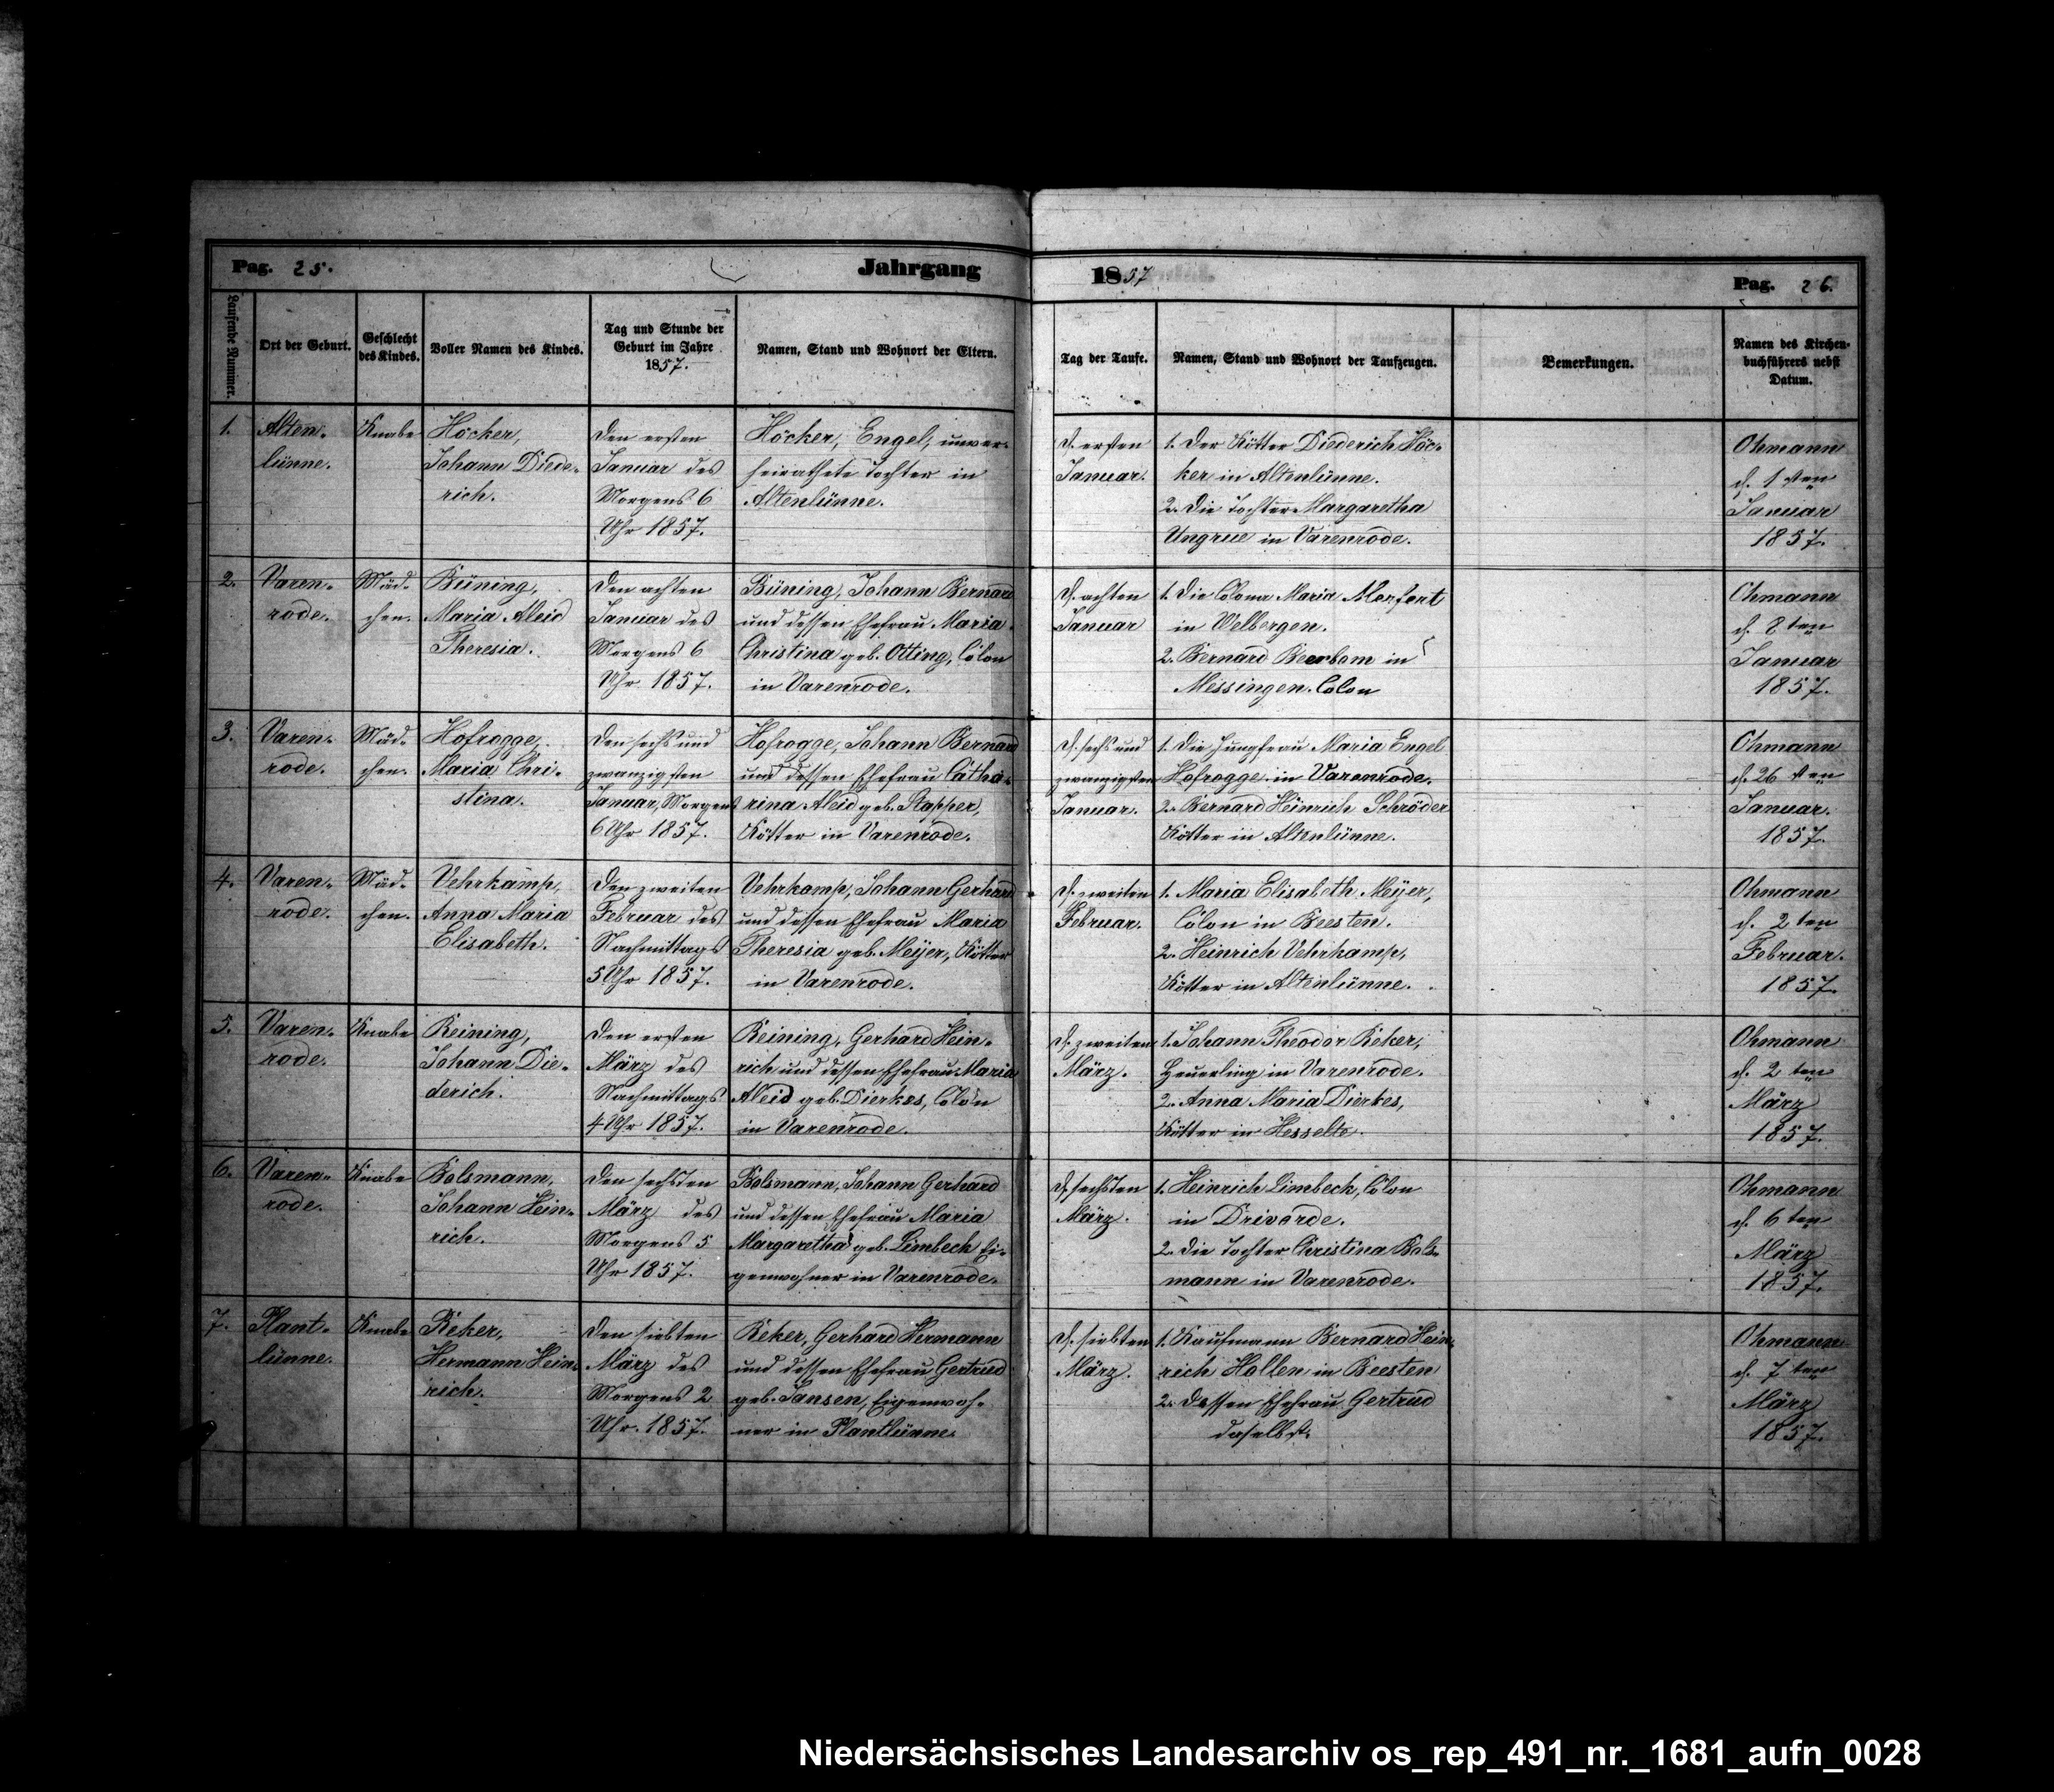 Pag. 25.
Jahrgang
1857
Pag. 26.
Laufende Nummer.
Ort der Geburt.
Geschlecht
des Kindes.
Voller Namen des Kindes.
Tag und Stunde der
Geburt im Jahre
1857.
Namen, Stand und Wohnort der Eltern.
Tag der Taufe.
Namen, Stand und Wohnort der Taufzeugen.
Bemerkungen.
Namen des Kirchen-
buchführers nebst
Datum.
1.
Alten-
lünne.
Knabe
Höcker,
Johann Diede-
rich.
Den ersten
Januar des
Morgens 6
Uhr 1857.
Höcker, Engel, unver-
heirathete Tochter in
Altenlünne.
d. ersten
Januar.
1. Der Kötter Diederich Höc-
ker in Altenlünne.
2. Die Tochter Margaretha
Ungrue in Varenrode.
Ohmann
d. 1 sten
Januar
1857.
2.
Varen-
rode.
Mäd-
chen.
Büning,
Maria Aleid
Theresia.
Den achten
Januar des
Morgens 6
Uhr 1857.
Büning, Johann Bernard
und dessen Ehefrau Maria
Christina geb. Otting, Colon
in Varenrode.
d. achten
Januar
1. Die Colona Maria
in Welbergen.
2. Bernard Beerbom in
Messingen. Colon
Ohmann
d. 8 ten
Januar
1857.
3.
Varen-
rode.
Mäd-
chen.
Hofrogge,
Maria Chri-
stina.
Den sechs und
zwanzigsten
Januar, Morgens
6 Uhr 1857.
Hofrogge, Johann Bernard
und dessen Ehefrau Catha-
rina Aleid geb. Stapper,
Kötter in Varenrode.
d. sechs und
zwanzigsten
Januar.
1. Die Jungfrau Maria Engel
Hofrogge in Varenrode.
2. Bernard Heinrich Schröder
Kötter in Altenlünne.
Ohmann
d. 26 sten
Januar.
1857.
4.
Varen-
rode.
Mäd-
chen.
Vehrkamp,
Anna Maria
Elisabeth.
Den zweiten
Februar des
Nachmittags
5 Uhr 1857.
Vehrkamp, Johann Gerhard
und dessen Ehefrau Maria
Theresia geb. Meyer, Kötter
in Varenrode.
d. zweiten
Februar.
1. Maria Elisabeth Meyer,
Colon in Beesten.
2. Heinrich Vehrkamp,
Kötter in Altenlünne.
Ohmann
d. 2 ten
Februar.
1857.
5.
Varen-
rode.
Knabe
Reining,
Johann Die-
derich.
Den ersten
März des
Nachmittags
4 Uhr 1857.
Reining, Gerhard Hein-
rich und dessen Ehefrau Maria
Aleid geb. Dierkes, Colon
in Varenrode.
d. zweiten
März.
1. Johann Theodor Reker,
Heuerling in Varenrode.
2. Anna Maria Dierkes,
Kötter in Hesselte.
Ohmann
d. 2 ten
März
1857.
6.
Varen-
rode.
Knabe
Bolsmann,
Johann Hein-
rich.
Den sechsten
März des
Morgens 5
Uhr 1857.
Bolsmann, Johann Gerhard
und dessen Ehefrau Maria
Margaretha geb. Limbeck Ei-
genwohner in Varenrode.
d. sechsten
März.
1. Heinrich Limbeck, Colon
in Drivorde.
2. Die Tochter Christina Bols-
mann in Varenrode.
Ohmann
d. 6 ten
März
1857.
7.
Plant-
lünne.
Knabe
Reker,
Hermann Hein-
rich.
Den siebten
März des
Morgens 2
Uhr. 1857.
Reker, Gerhard Hermann
und dessen Ehefrau Gertrud
geb. Jansen, Eigenwoh-
ner in Plantlünne.
d. siebten
März.
1. Kaufmann Bernard Hein-
rich Hollen in Beesten
2. Dessen Ehefrau Gertrud
daselbst.
Ohmann
d. 7 ten
März
1857.
Niedersächsisches Landesarchiv os_rep_491_nr._1681_aufn_0028